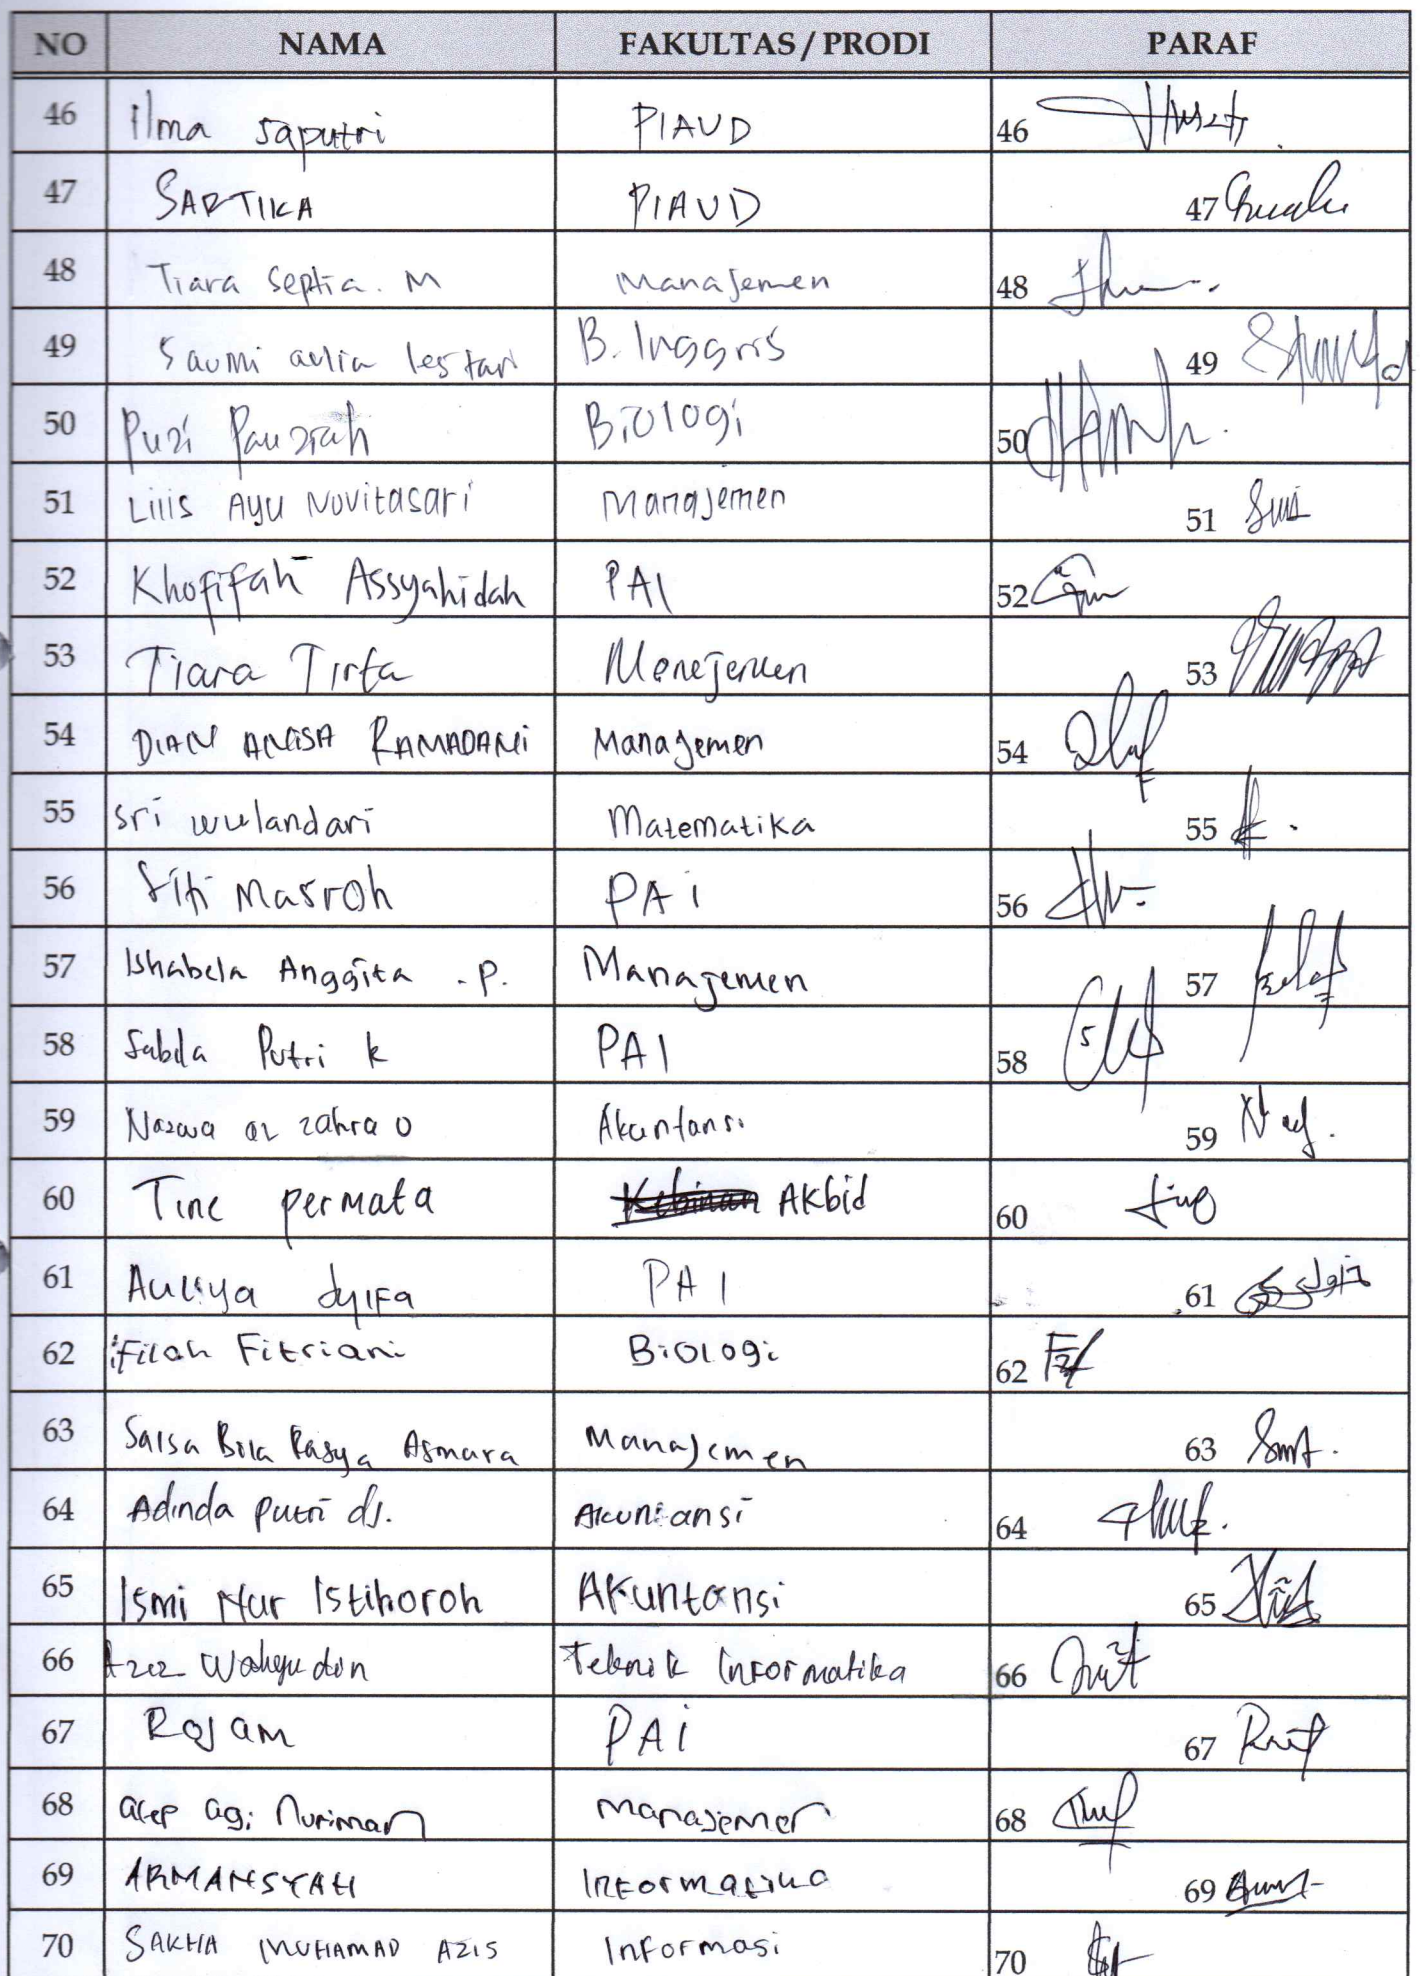 NO NAMA FAKULTAS / PRODI PARAF
46 ilma saputri PIAUD 46
47 SARTIKA PIAUD 47
48 Tiara Septia. M Manajemen 48
49 Saumi aulia lestari B. Inggris 49
50 Puzi Pauziah Biologi 50
51 Lilis Ayu Novitasari Manajemen 51
52 Khofifah Assyahidah PAI 52
53 Tiara Tirta Menejemen 53
54 DIAN ANGISA RAMADANi Manajemen 54
55 Sri wulandari Matematika 55
56 Siti Masroh PAi 56
57 Ishabela Anggita .P. Manajemen 57
58 Sabila Putri k PAI 58
59 Nazwa az zahra O Akuntansi 59
60 Tine permata Akbid 60
61 Auliya dylfa PAI 61
62 ifilah Fitriani Biologi 62
63 Salsa Bila Rasya Asmara Manajemen 63
64 Adinda Putri ds. Akuntansi 64
65 Ismi Nur Istihoroh Akuntansi 65
66 Aziz Wahyudin Teknik Informatika 66
67 Rojam PAi 67
68 acep agi Nuriman Manajemen 68
69 ARMANSYAH Informatika 69
70 SAKHA MUHAMAD AZIS Informasi 70